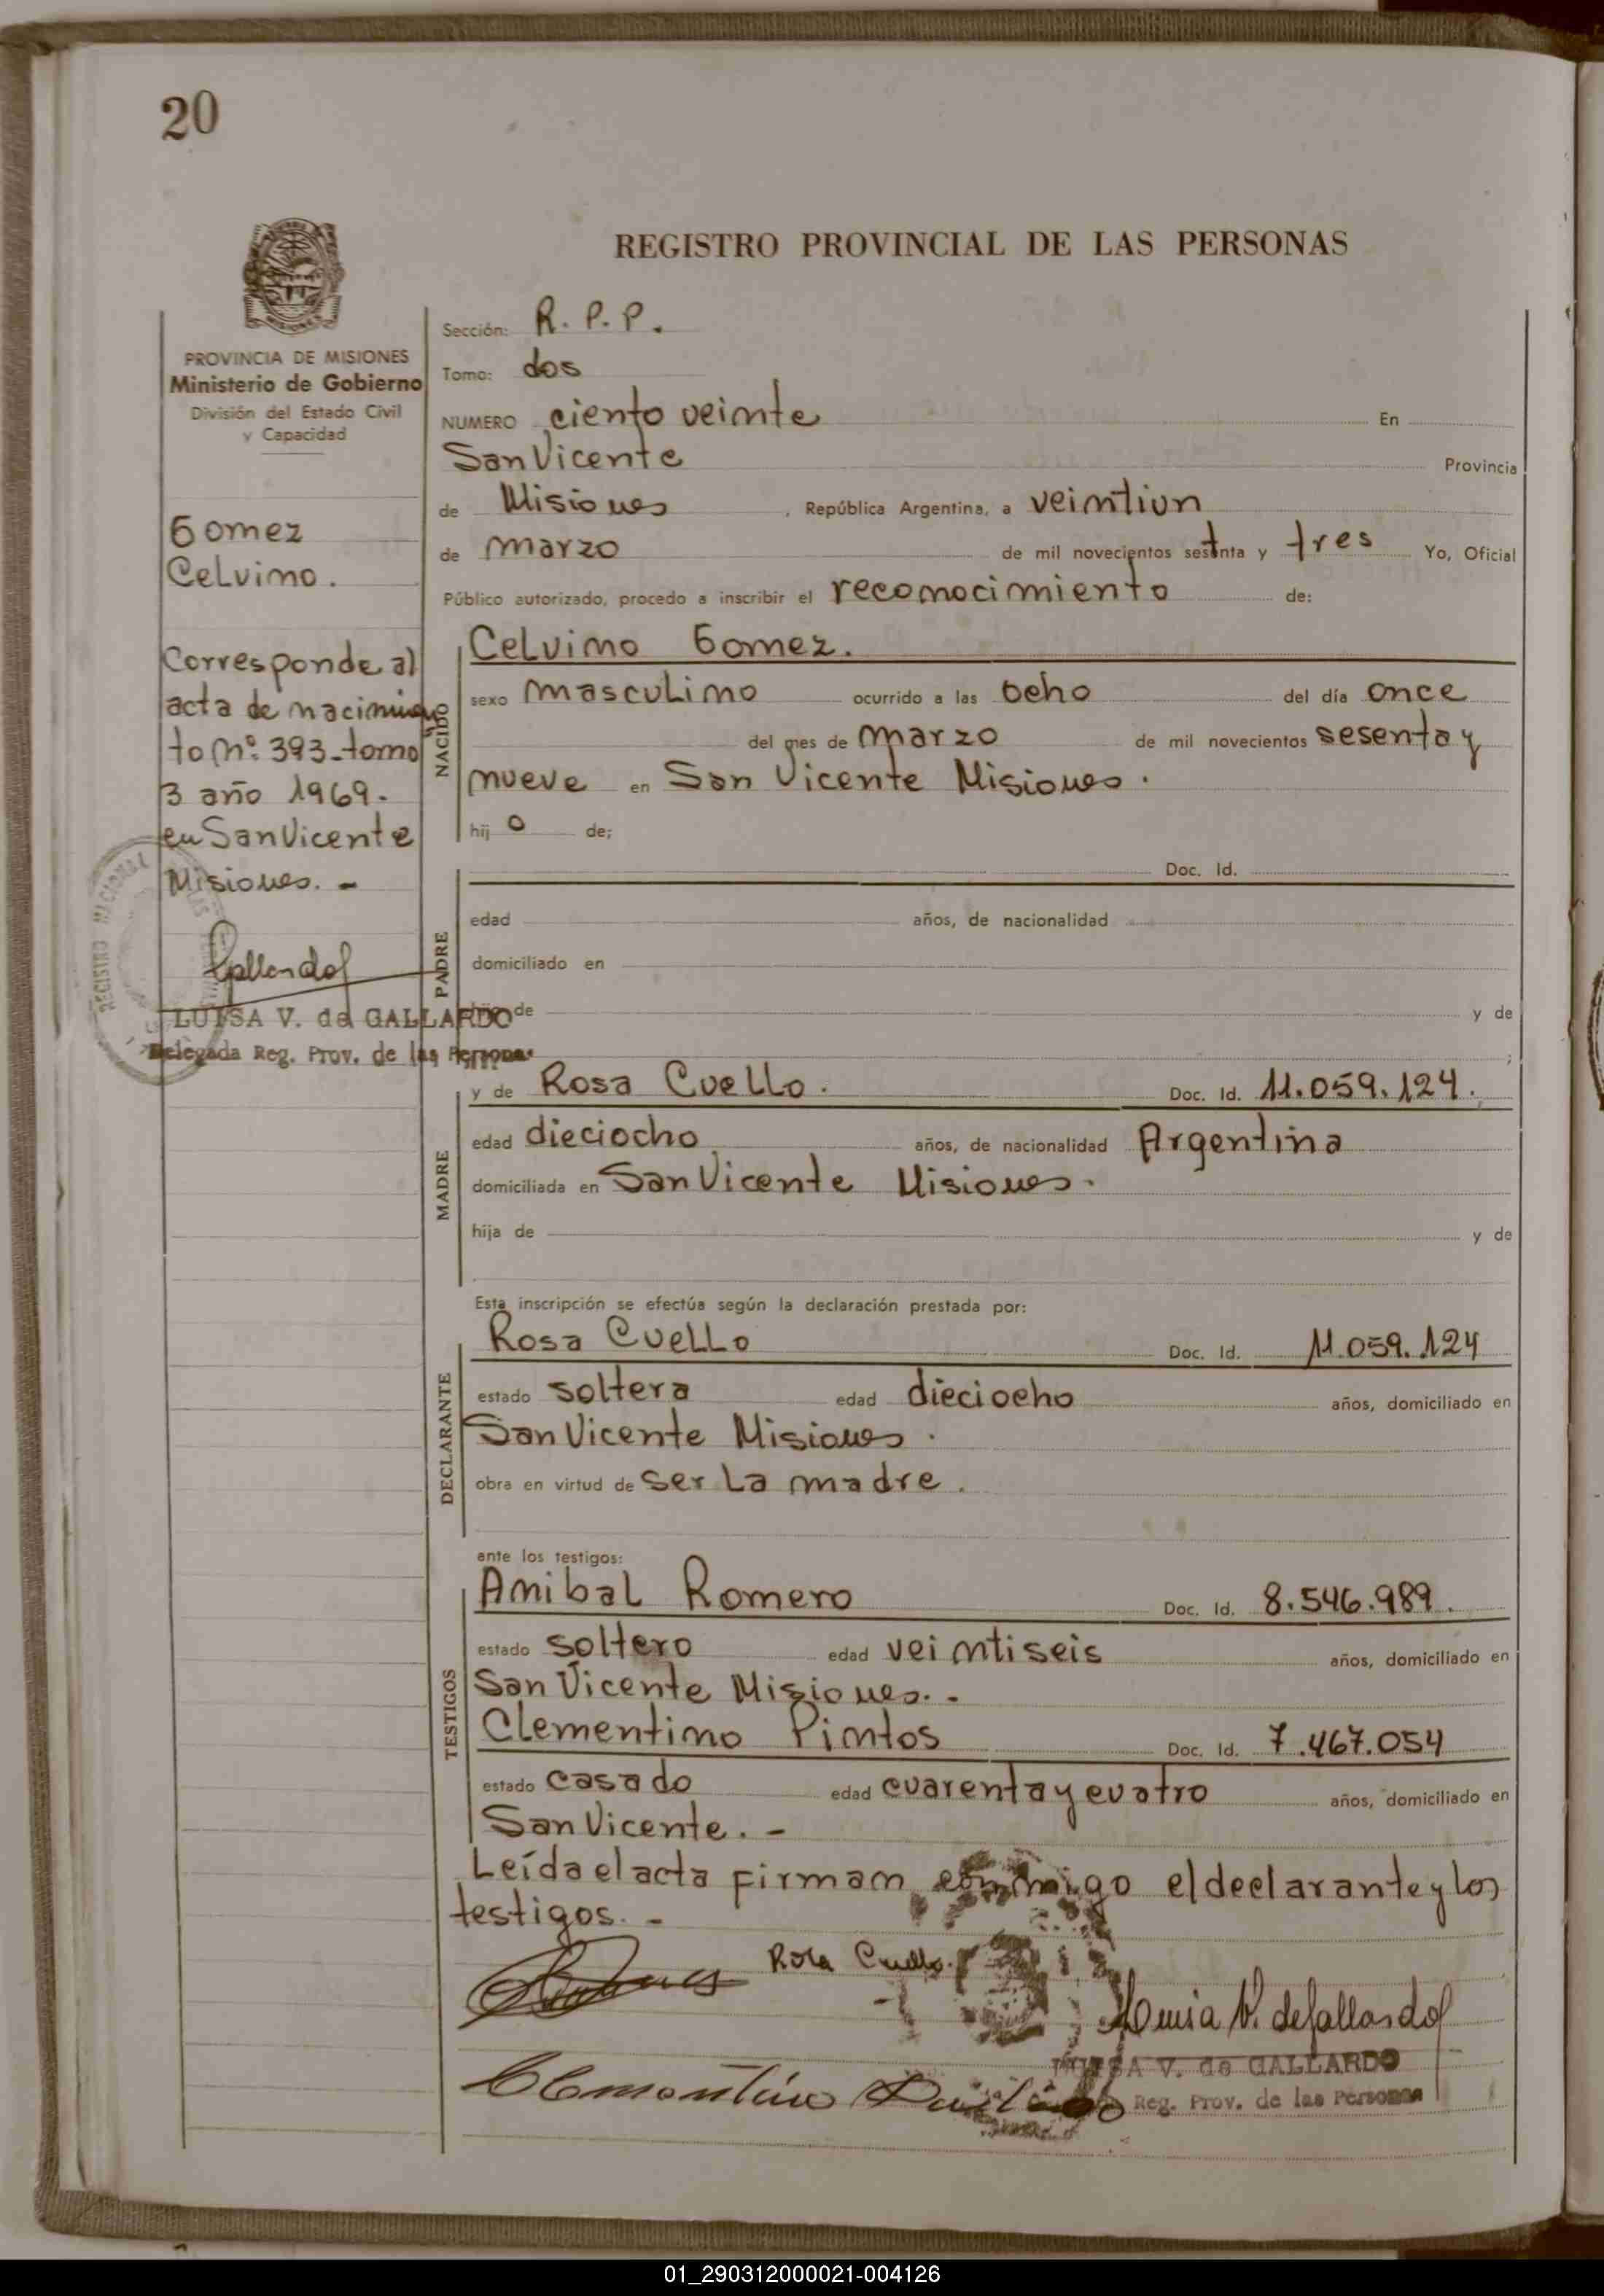 20
REGISTRO PROVINCIAL DE LAS PERSONAS
PROVINCIA DE MISIONES
Ministerio de Gobierno
División del Estado Civil
y Capacidad
Gomez
Celvino.
Corresponde al
acta de nacimien
to Nº: 393 - tomo
3 año 1969.
en San Vicente
Misiones. -
REGISTRO NACIONAL
Gallardo
LUISA V. de GALLARDO
Delegada Reg. Prov. de las Personas
Sección: R. P. P.
Tomo: dos
NUMERO ciento veinte En
San Vicente Provincia
de Misiones, República Argentina, a veintiun
de marzo de mil novecientos setenta y tres Yo, Oficial
Público autorizado, procedo a inscribir el reconocimiento de:
NACIDO
Celvino Gomez.
sexo masculino ocurrido a las ocho del día once
del mes de marzo de mil novecientos sesenta y
nueve en San Vicente Misiones.
hij o de;
PADRE
Doc. Id.
edad años, de nacionalidad
domiciliado en
de y de
;
MADRE
y de Rosa Cuello. Doc. Id. 11.059.124.
edad dieciocho años, de nacionalidad Argentina
domiciliada en San Vicente Misiones.
hija de y de
Esta inscripción se efectúa según la declaración prestada por:
DECLARANTE
Rosa Cuello Doc. Id. 11.059.124
estado soltera edad dieciocho años, domiciliado en
San Vicente Misiones.
obra en virtud de ser la madre.
ante los testigos:
TESTIGOS
Anibal Romero Doc. Id. 8.546.989.
estado soltero edad veintiseis años, domiciliado en
San Vicente Misiones. -
Clementino Pintos Doc. Id. 7.467.054
estado casado edad cuarenta y cuatro años, domiciliado en
San Vicente. -
Leída el acta firman conmigo el declarante y los
testigos. -
Rosa Cuello.
Luisa V. de Gallardo
LUISA V. de GALLARDO
Reg. Prov. de las Personas
Clementino
01_290312000021-004126